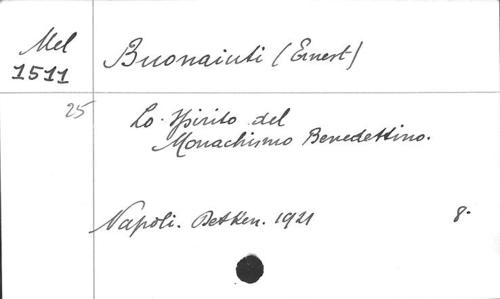 Mel
1511
Buonaiuti (Ernest)
25
Lo Spirito del
Monachismo Benedettino.
Napoli. Detken. 1921
8.